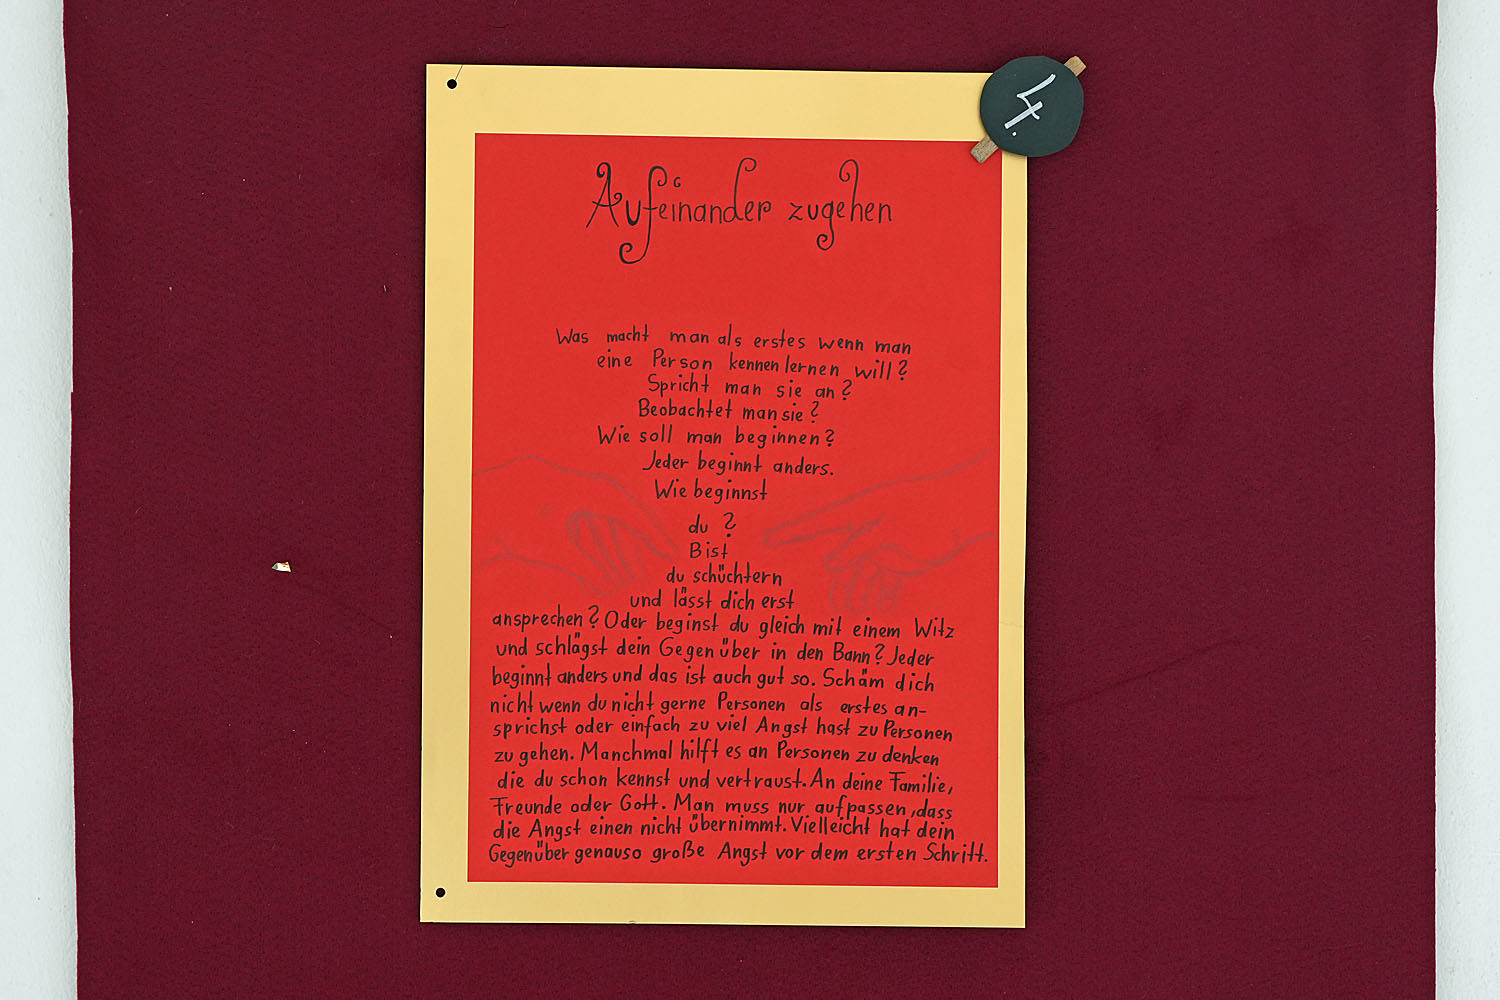 4.
Aufeinander zugehen
Was macht man als erstes wenn man
eine Person kennen lernen will?
Spricht man sie an?
Beobachtet man sie?
Wie soll man beginnen?
Jeder beginnt anders.
Wie beginnst
du ?
Bist
du schüchtern
und lässt dich erst
ansprechen? Oder beginst du gleich mit einem Witz
und schlägst dein Gegenüber in den Bann? Jeder
beginnt anders und das ist auch gut so. Schäm dich
nicht wenn du nicht gerne Personen als erstes an-
sprichst oder einfach zu viel Angst hast zu Personen
zu gehen. Manchmal hilft es an Personen zu denken
die du schon kennst und vertraust. An deine Familie,
Freunde oder Gott. Man muss nur aufpassen, dass
die Angst einen nicht übernimmt. Vielleicht hat dein
Gegenüber genauso große Angst vor dem ersten Schritt.